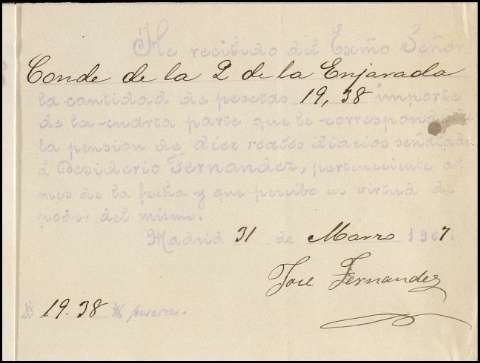 He recibido del Exmo Señor
Conde de la 2 de la Enjarada
la cantidad de pesetas 19,38 importe
de la cuarta parte que le corresponde
la pension de diez reales diarios señalada
á Desiderio Fernandez, perteneciente al
mes de la fecha y que percibo en virtud de
poder del mismo.
Madrid 31 de Marzo 1907.
José Fernandez
19.38 pesetas.